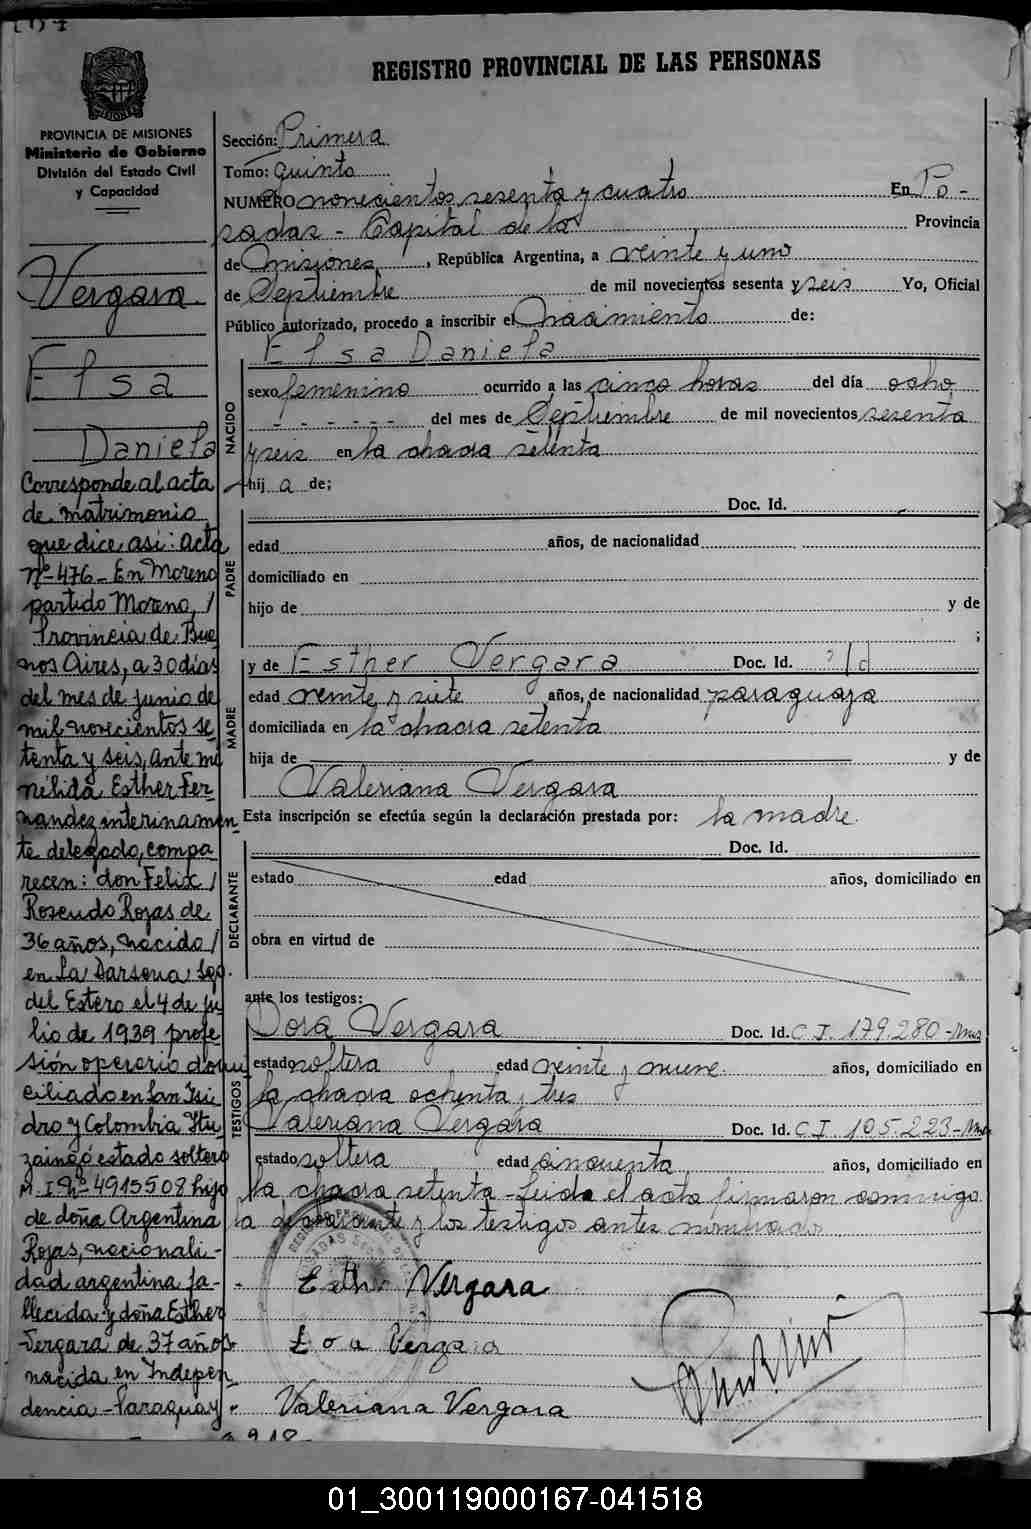 REGISTRO PROVINCIAL DE LAS PERSONAS
PROVINCIA DE MISIONES
Ministerio de Gobierno
División del Estado Civil
y Capacidad
Vergara
Elsa
Daniela
Corresponde al acta
de matrimonio
que dice asi: acta
Nº 476 - En Moreno
partido Moreno, /
Provincia de Bue
nos Aires, a 30 dias
del mes de junio de
mil novecientos se
tenta y seis, ante mi
nélida Esther Fer-
nandez interinamen
te delegado, compa
recen: don Felix /
Rosendo Rojas de
36 años, nacido /
en La Darsena Sgo.
del Estero el 4 de ju
lio de 1939 profe
sión operario domi
ciliado en San Isi
dro y Colombia Itu
zaingó estado soltero
M. I Nº 4915508 hijo
de doña Argentina
Rojas, nacionali-
dad argentina fa-
llecida y doña Esther
Vergara de 37 años
nacida en Indepen
dencia - Paraguay
Sección: Primera
Tomo: quinto
NUMERO novecientos sesenta y cuatro En Po -
sadas - Capital de la Provincia
de Misiones, República Argentina, a veinte y uno
de Septiembre de mil novecientos sesenta y seis Yo, Oficial
Público autorizado, procedo a inscribir el Nacimiento de:
Elsa Daniela
NACIDO
sexo femenino ocurrido a las cinco horas del día ocho
- - - - - - del mes de Septiembre de mil novecientos sesenta
y seis en la chacra setenta
hij a de;
PADRE
Doc. Id.
edad años, de nacionalidad
domiciliado en
hijo de y de
;
MADRE
y de Esther Vergara Doc. Id.
edad veinte y siete años, de nacionalidad paraguaya
domiciliada en la chacra setenta
hija de y de
Valeriana Vergara
Esta inscripción se efectúa según la declaración prestada por: la madre.
DECLARANTE
Doc. Id.
estado edad años, domiciliado en
obra en virtud de
ante los testigos:
TESTIGOS
Dora Vergara Doc. Id. C I. 179.280 - Mnes
estado soltera edad veinte y nueve. años, domiciliado en
la chacra ochenta y tres
Valeriana Vergara Doc. Id. C I. 105.223 - Mnes
estado soltera edad cincuenta años, domiciliado en
la chacra setenta - Leida el acta firmaron conmigo
la declarante y los testigos antes nombrado
Esther Vergara
Vergara
Valeriana Vergara
01_300119000167-041518